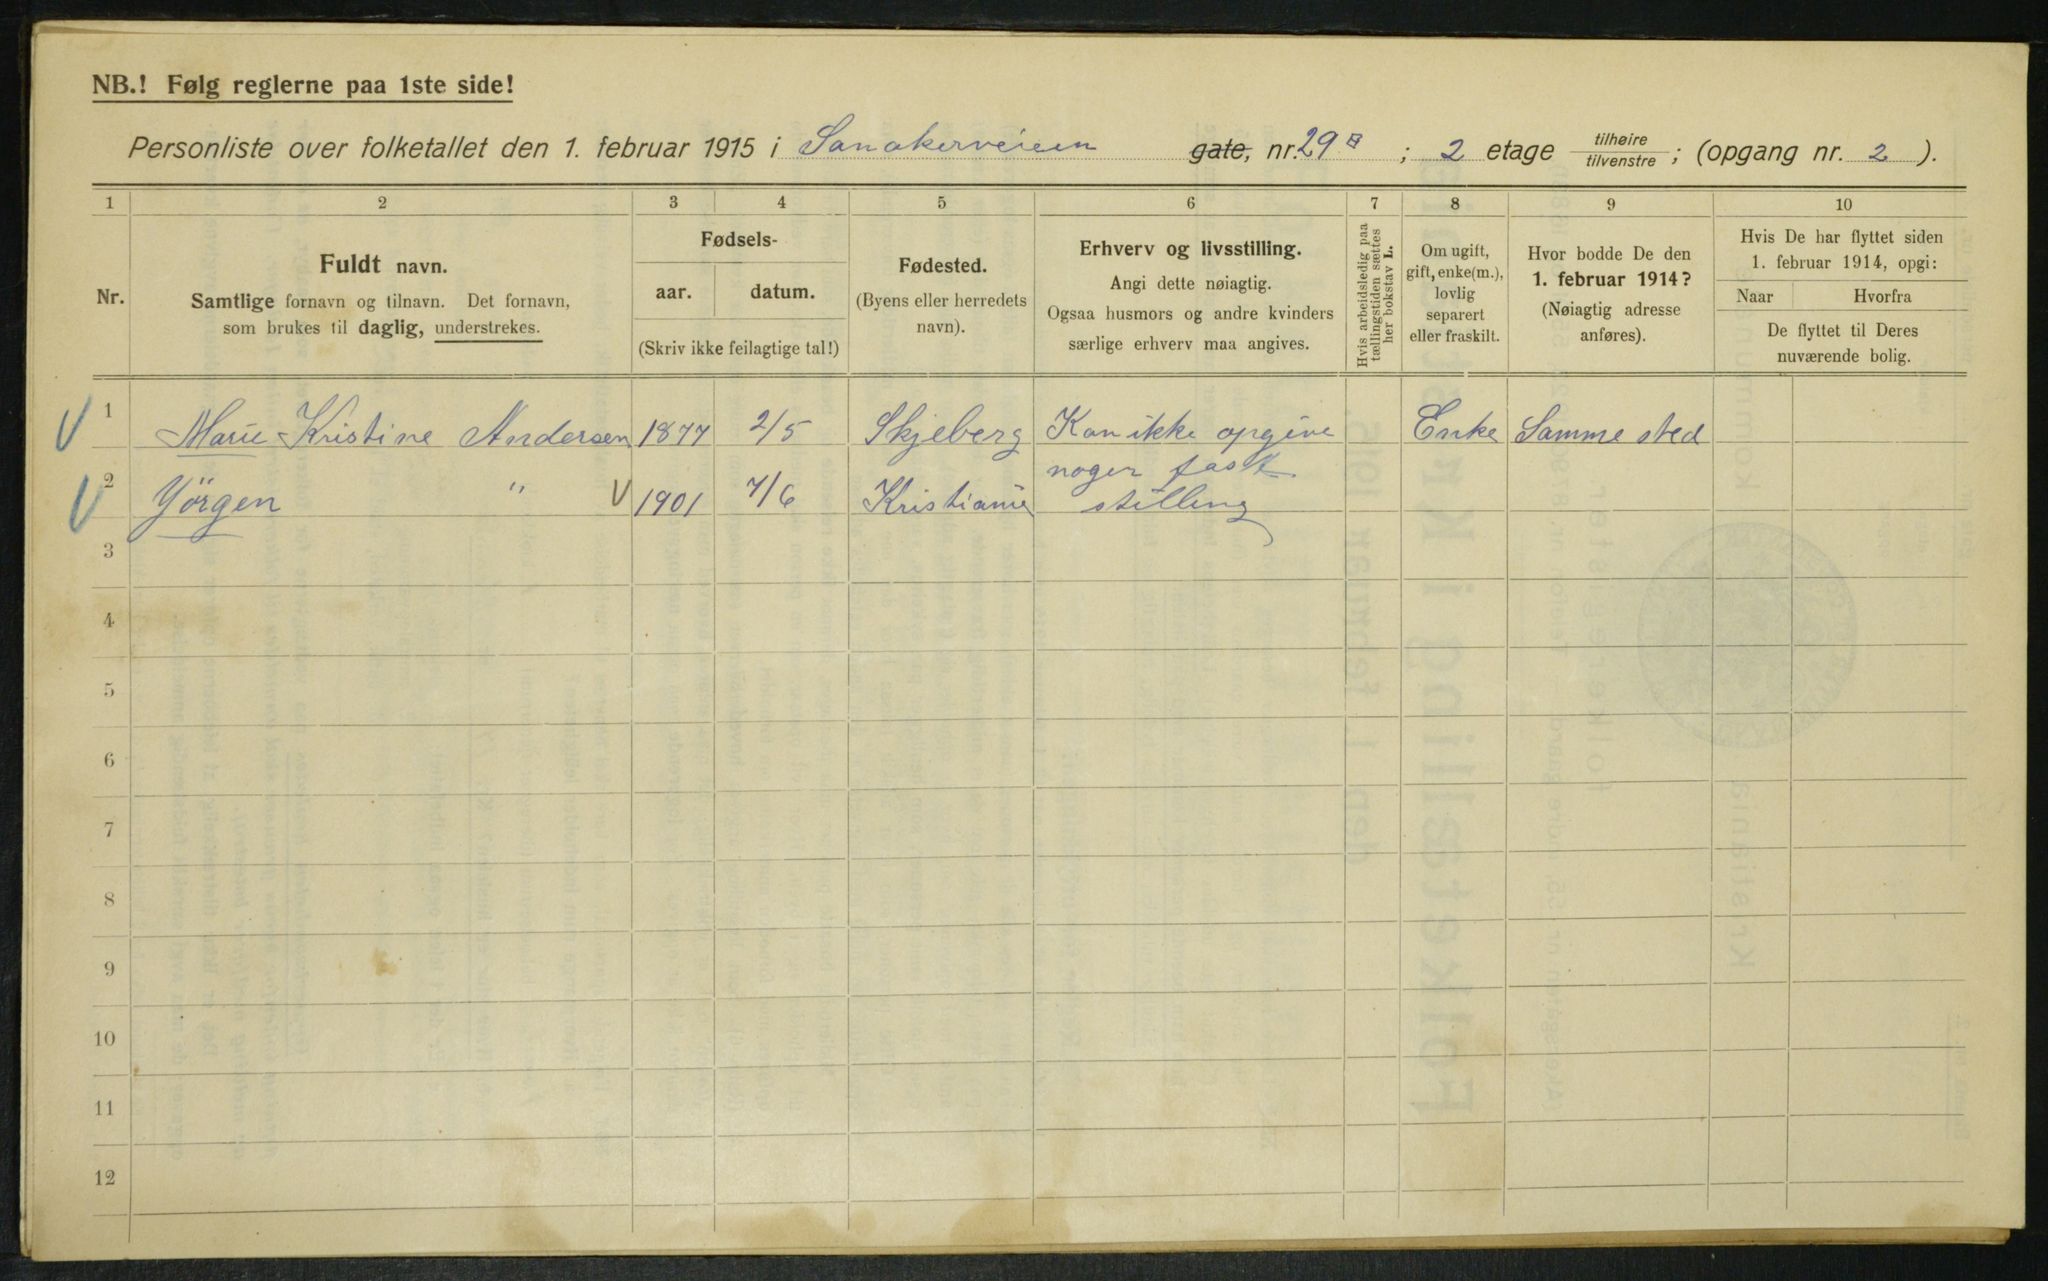 NB.! Følg reglerne paa 1ste side!
Personliste over folketallet den 1. februar 1915 i Sanakerveien gate, nr. 29 B ; 2 etage tilhøire / tilvenstre ; (opgang nr. 2 ).
1 2 3 4 5 6 7 8 9 10
Nr.
Fuldt navn.
Samtlige fornavn og tilnavn. Det fornavn,
som brukes til daglig, understrekes.
Fødsels-
aar. datum.
(Skriv ikke feilagtige tal!)
Fødested.
(Byens eller herredets
navn).
Erhverv og livsstilling.
Angi dette nøiagtig.
Ogsaa husmors og andre kvinders
særlige erhverv maa angives.
Hvis arbeidsledig paa
tællingstiden sættes
her bokstav L.
Om ugift,
gift, enke(m.),
lovlig
separert
eller fraskilt.
Hvor bodde De den
1. februar 1914?
(Nøiagtig adresse
anføres).
Hvis De har flyttet siden
1. februar 1914, opgi:
Naar Hvorfra
De flyttet til Deres
nuværende bolig.
1 Marie Kristine Andersen 1877 2/5 Skjeberg Kan ikke opgive Enke Samme sted
noger fast
2 Yörgen " V 1901 7/6 Kristiania stilling
3
4
5
6
7
8
9
10
11
12